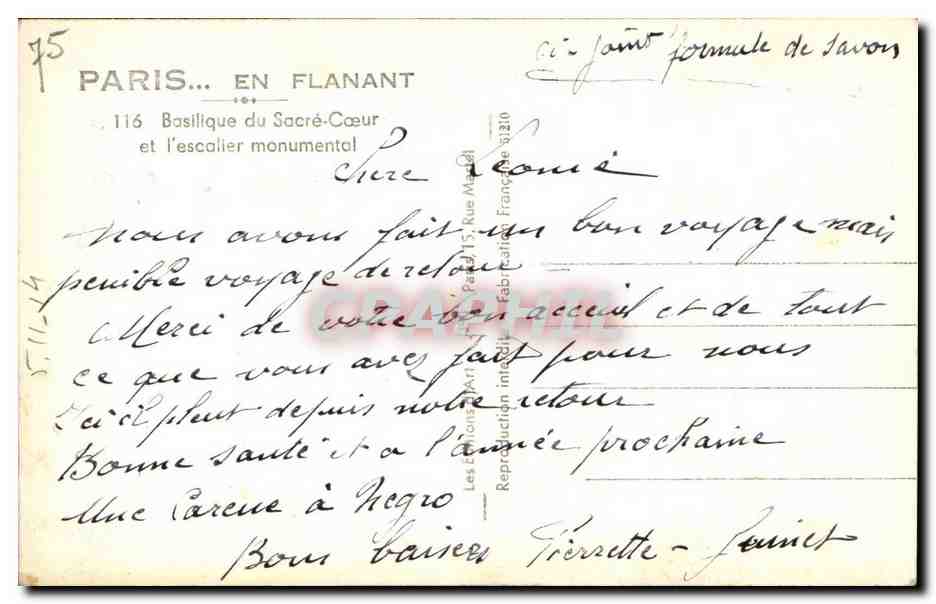 75
ci-joint formule de savon
PARIS... EN FLANANT
116 Basilique du Sacré-Cœur
et l'escalier monumental
Chere Leonie
Nous avons fait un bon voyage mais
penible voyage de retour
Merci de votre bon acceuil et de tout
ce que vous avez fait pour nous
Ici il pleut depuis notre retour
Bonne santé et a l'année prochaine
Une Caresse à Negro
Bons baisers Pierrette -
5.11-14
Les Editions d'Art Paris, 15, Rue Martel
Reproduction interdite Fabrication Française 61210
CPAPHIL